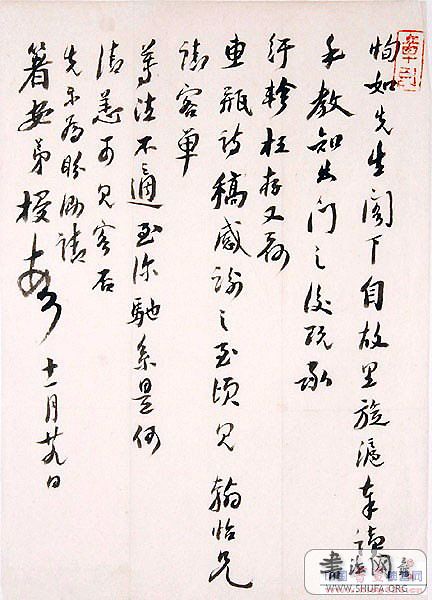 恂如先生阁下自故里旋沪奉读
手教知出门之后既承
行轸枉存又荷
惠瓶诗稿感谢之至顷见翰怡兄
请客单
尊法不适至深驰系是何
清恙可见客否
先示为盼尚请
著安弟授
十一月廿九日
書法网
WWW.SHUFA.ORG